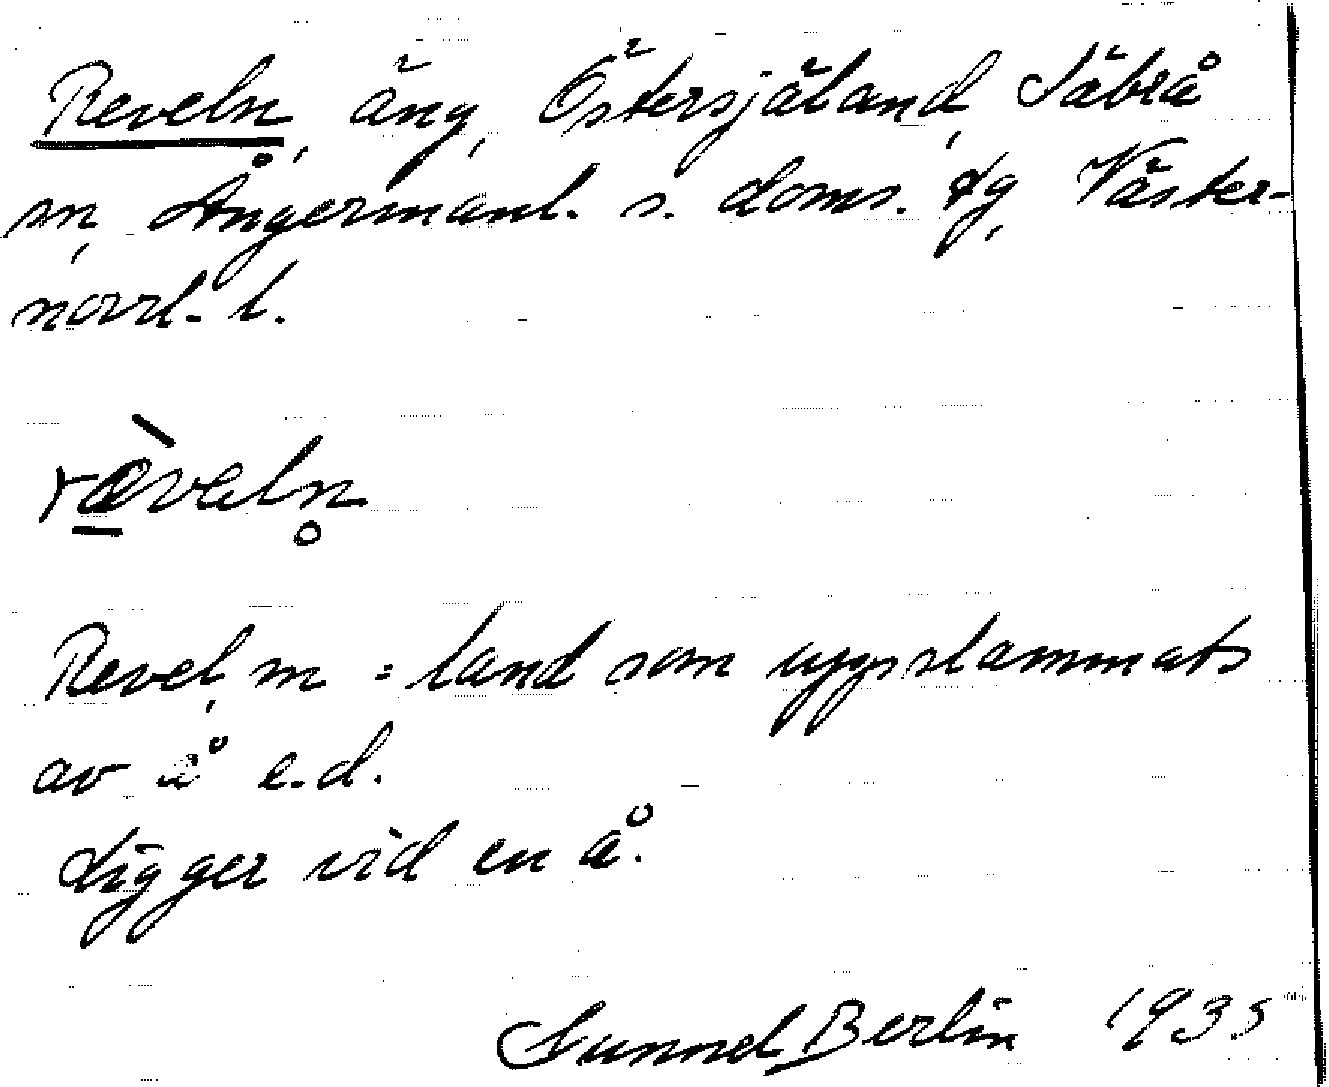 Reveln, äng, Östersjäland, Säbrå
sn, Ångermanl. s. doms. tg, Väster-
norrl. l.
ræ̀veln̥
Revel, m = land som uppslammats
av å e.d.
Ligger vid en å.
Gunnel Berlin 1935